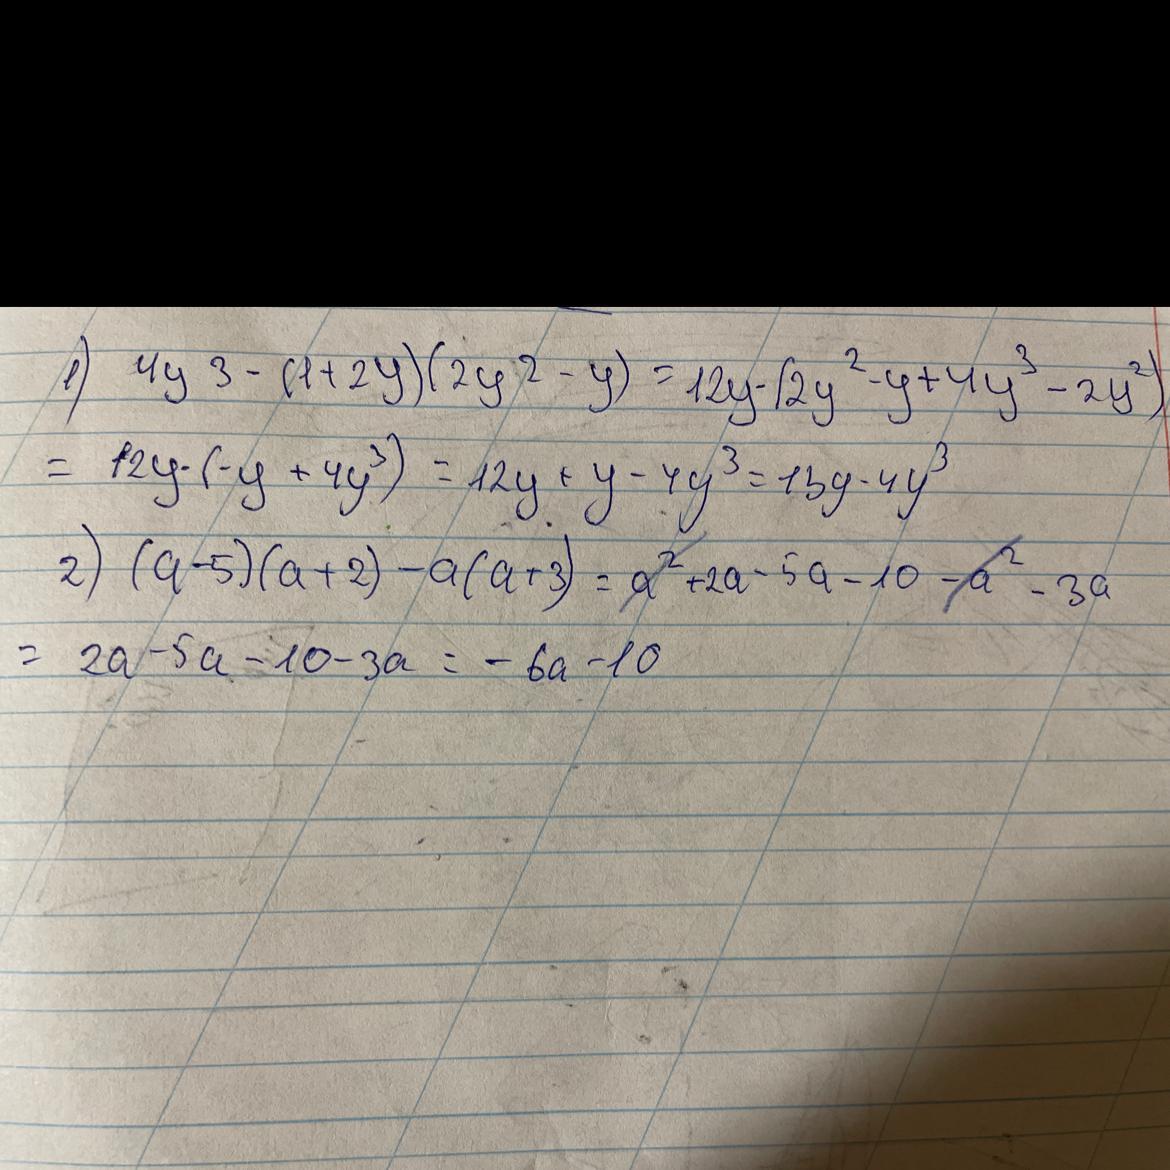 1) 4y 3 - (1+2y)(2y 2 - y) = 12y-(2y² - y + 4y³ - 2y²)
= 12y-(-y + 4y³) = 12y + y - 4y³ = 13y - 4y³
2) (a-5)(a+2) - a(a+3) = a² + 2a - 5a - 10 - a² - 3a
= 2a - 5a - 10 - 3a = - 6a - 10